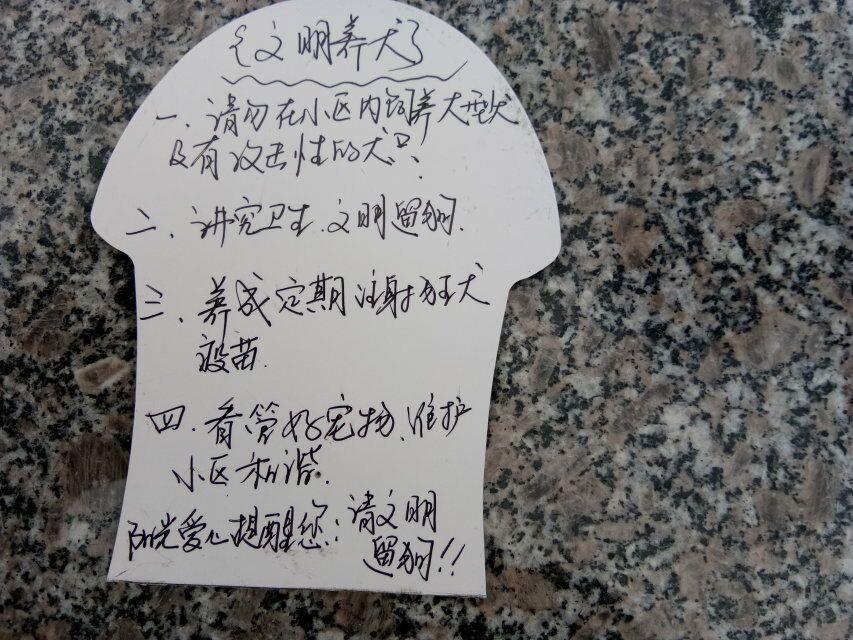 {文明养犬}
一、请勿在小区内饲养大型犬
及有攻击性的犬只、
二、讲究卫生、文明遛狗.
三、养成定期注射狂犬
疫苗.
四、看管好宠物、维护
小区和谐.
阳光爱心提醒您：请文明
遛狗!!